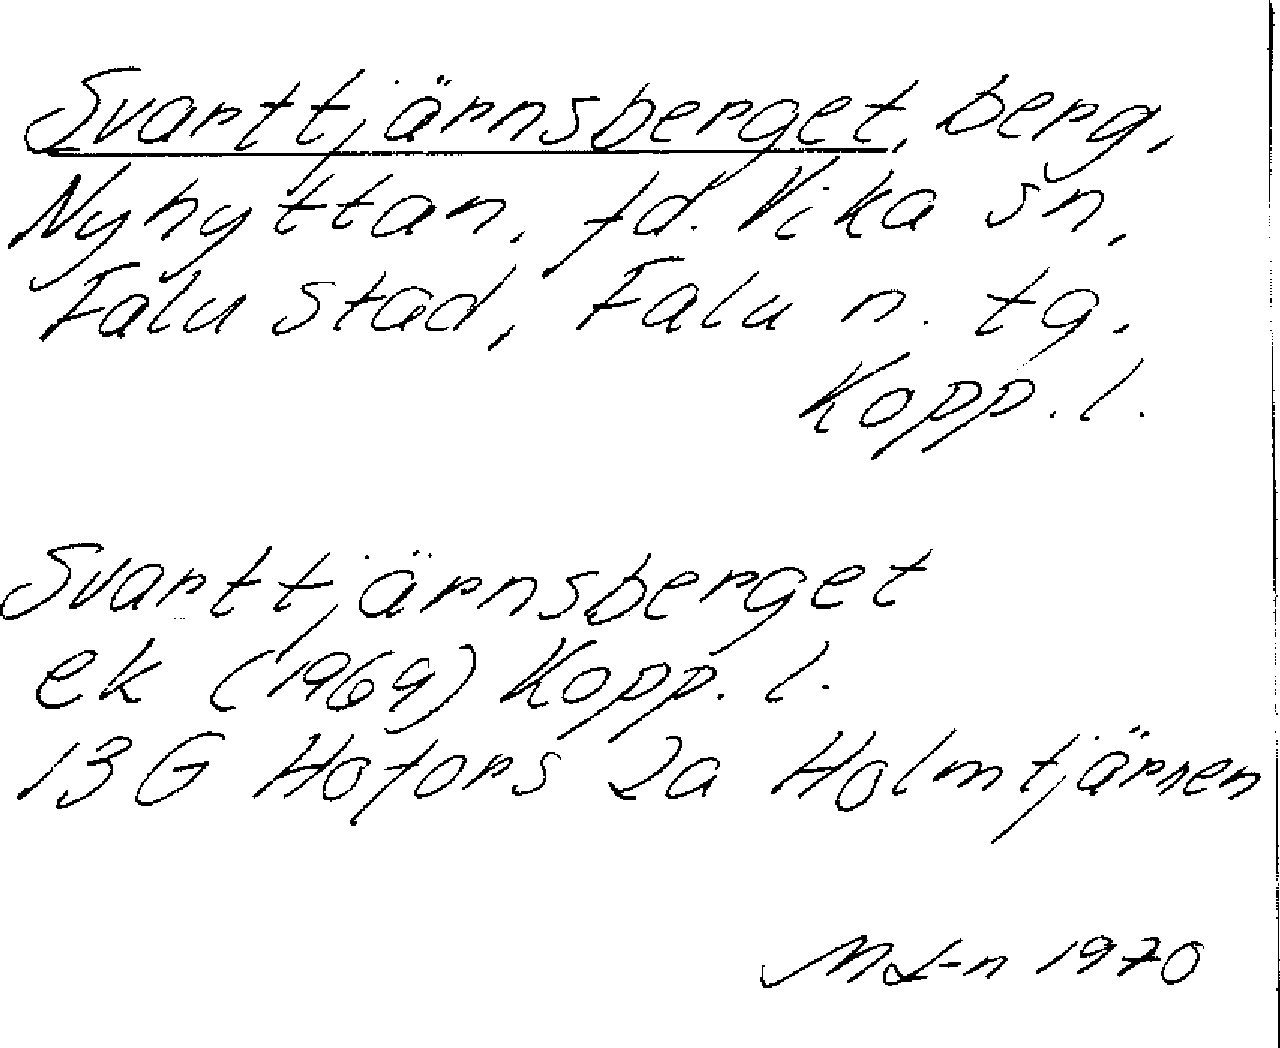 Svarttjärnsberget, berg,
Nyhyttan, fd. Vika sn,
Falu stad, Falu n. tg.
Kopp. l.
Svarttjärnsberget
ek (1969) Kopp. l.
13 G Hofors 2a Holmtjärnen
1970